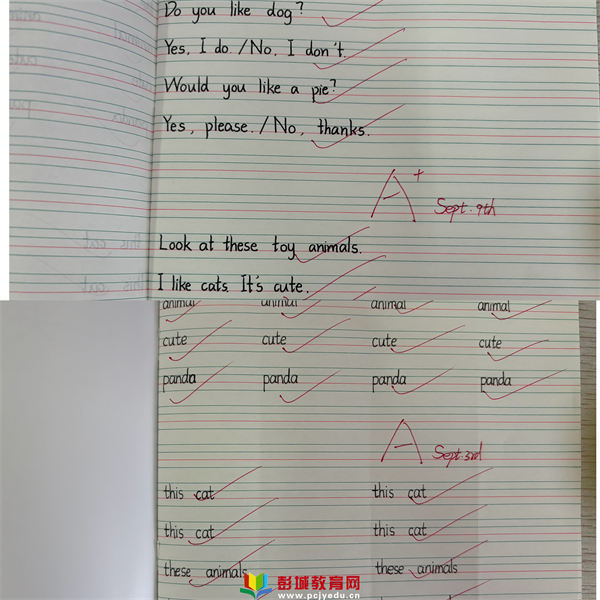 Do you like dog?
Yes, I do. /No, I don't.
Would you like a pie?
Yes, please. /No, thanks.
A+
Sept. 9th
Look at these toy animals.
I like cats. It's cute.
animal animal animal animal
cute cute cute cute
panda panda panda panda
A
Sept. 3rd
this cat this cat
this cat this cat
these animals these animals
彭城教育网
www.pcjyedu.cn